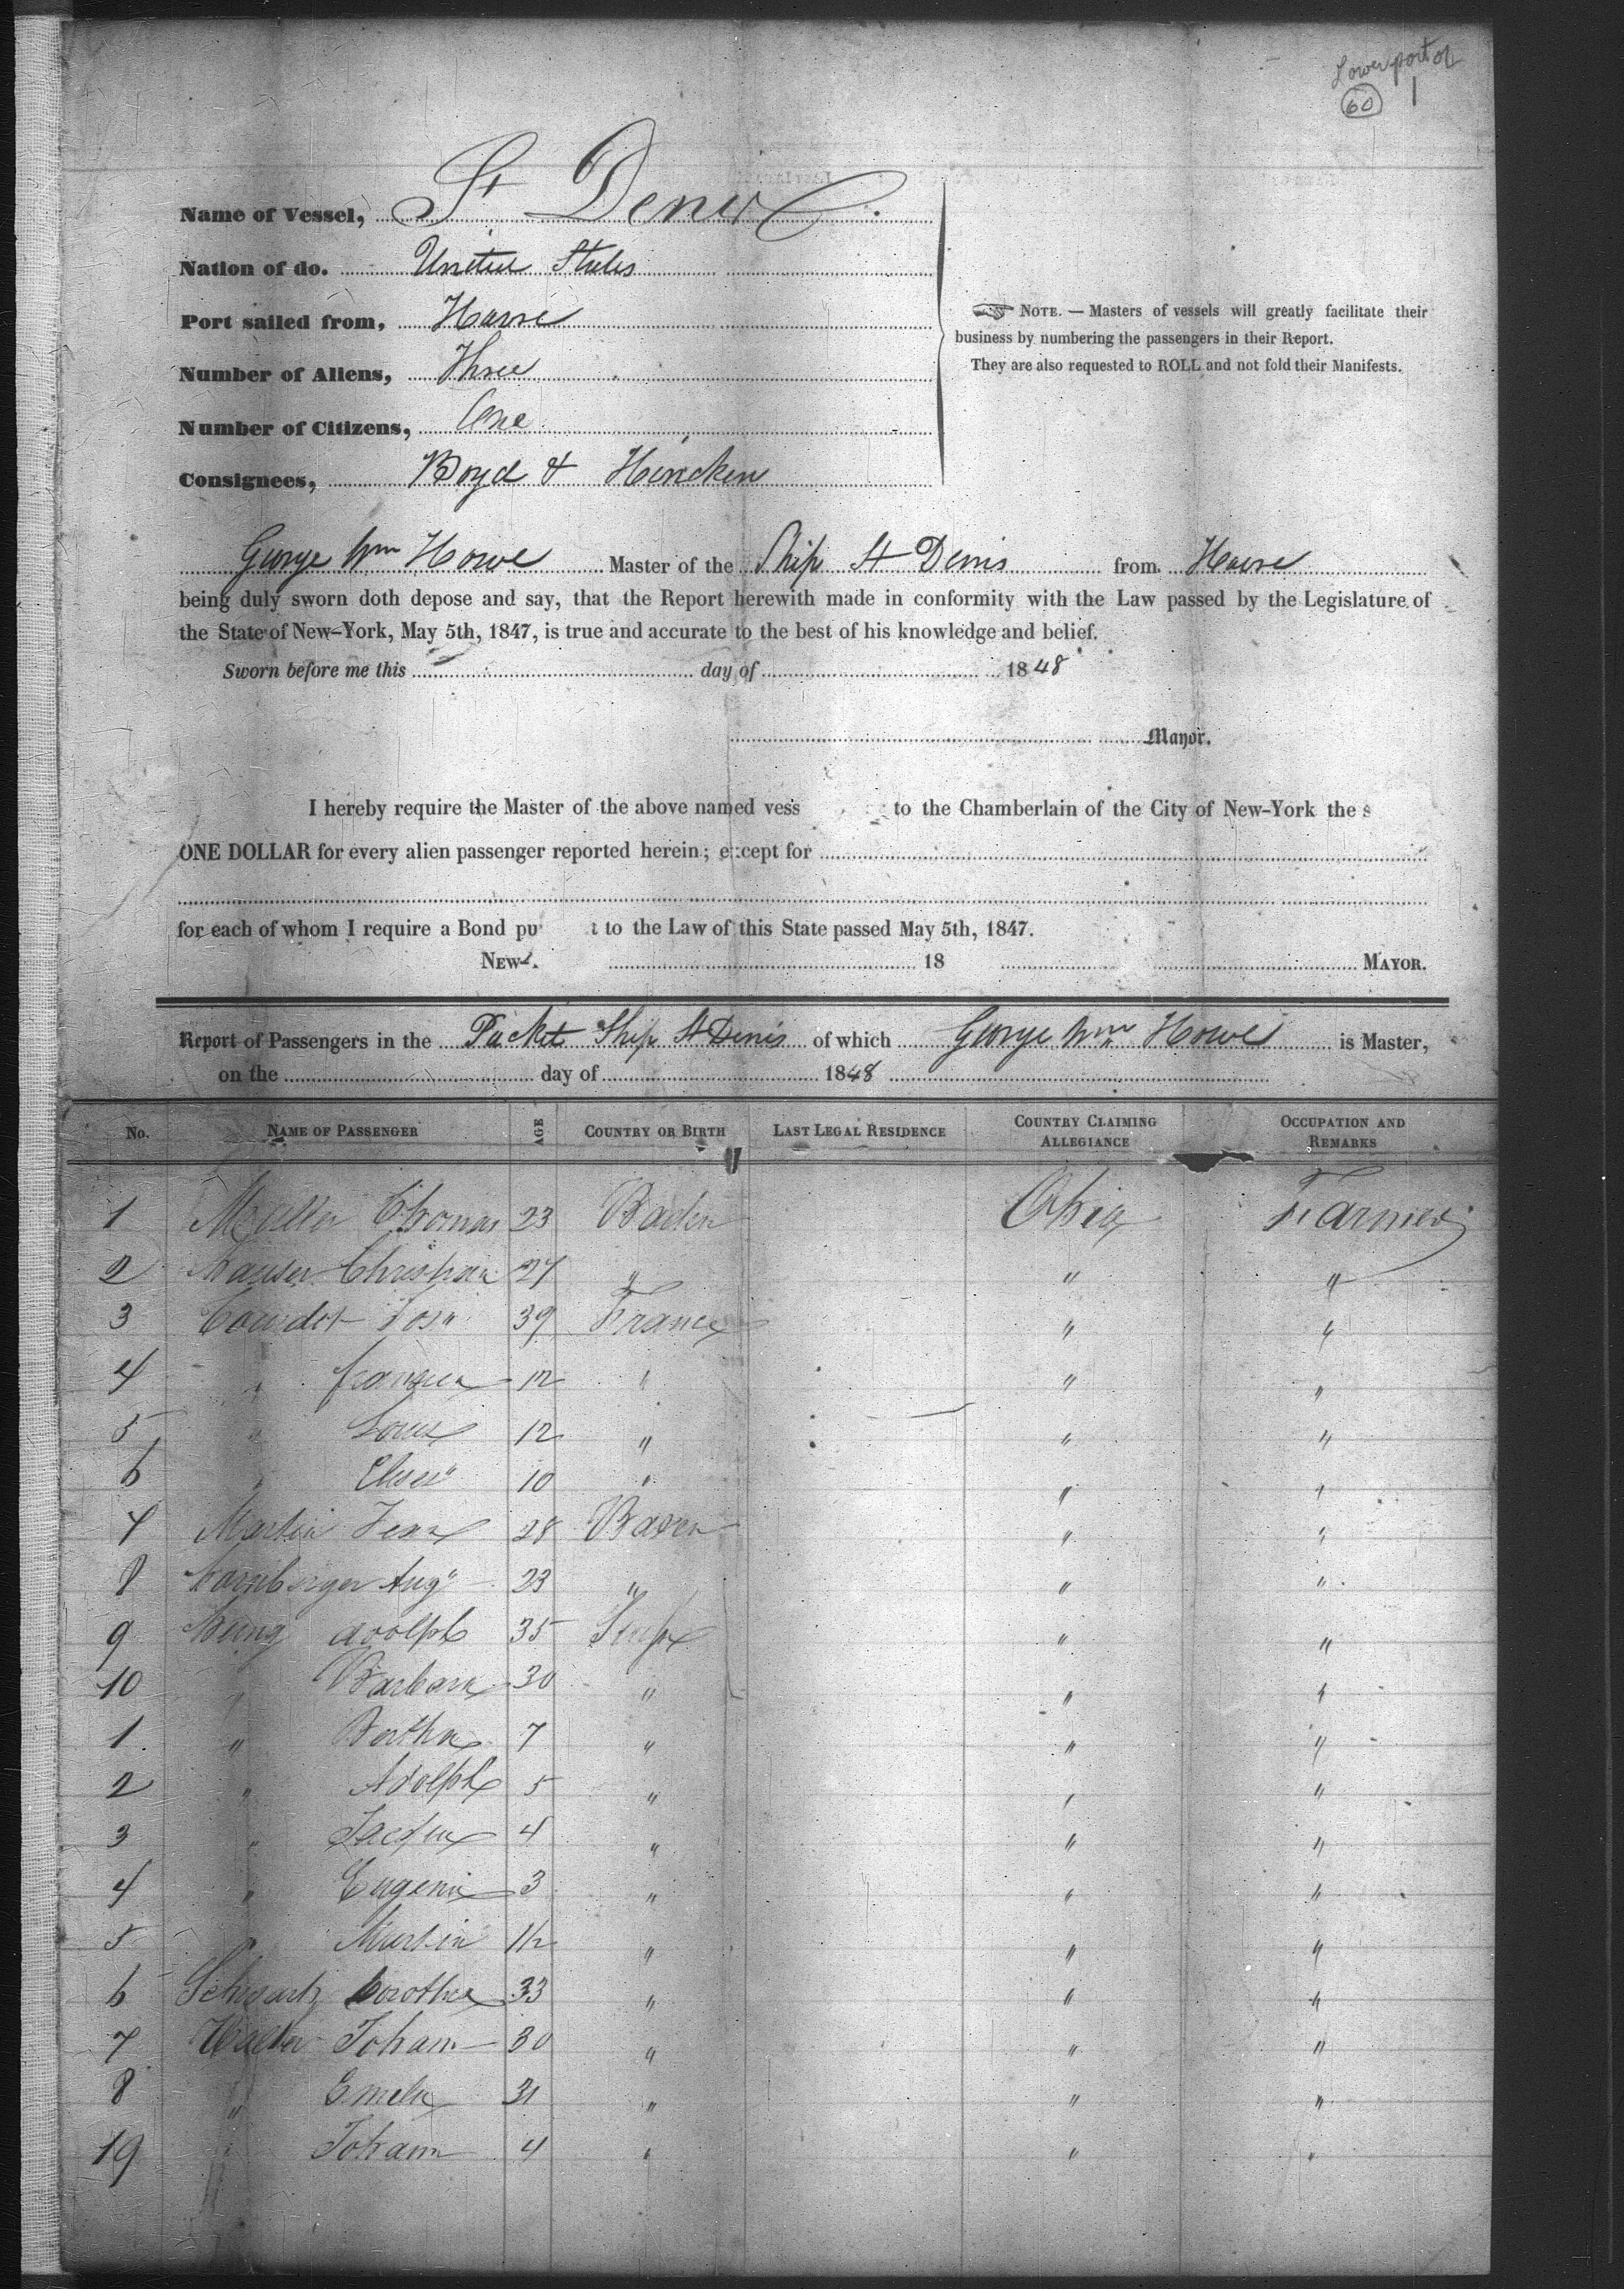 Lower port of
60 1
Name of Vessel, St Denis
Nation of do. United States
Port sailed from, Havre
Number of Aliens, Three
Number of Citizens, One
Consignees, Boyd & Hincken
NOTE. — Masters of vessels will greatly facilitate their
business by numbering the passengers in their Report.
They are also requested to ROLL and not fold their Manifests.
George Wm Howe Master of the Ship St Denis from Havre
being duly sworn doth depose and say, that the Report herewith made in conformity with the Law passed by the Legislature of
the State of New-York, May 5th, 1847, is true and accurate to the best of his knowledge and belief.
Sworn before me this day of 1848
Mayor.
I hereby require the Master of the above named vess to the Chamberlain of the City of New-York the s
ONE DOLLAR for every alien passenger reported herein; except for
for each of whom I require a Bond pu t to the Law of this State passed May 5th, 1847.
NEW- 18 MAYOR.
Report of Passengers in the Packet Ship St Denis of which George Wm Howe is Master,
on the day of 1848
No. NAME OF PASSENGER AGE COUNTRY OR BIRTH LAST LEGAL RESIDENCE COUNTRY CLAIMING ALLEGIANCE OCCUPATION AND REMARKS
1 Muller Thomas 23 Baden Ohio Farmer
2 Christian 27 " " "
3 39 France " "
4 " 12 " " "
5 " Louis 12 " " "
6 " 10 " " "
7 Martin Jean 28 Baden " "
8 Augt 23 " " "
9 Adolph 35 " "
10 " Barbara 30 " " "
1 " Bertha 7 " " "
2 " Adolph 5 " " "
3 " 4 " " "
4 " Eugenie 3 " " "
5 " Martin 1½ " " "
6 Schwartz Dorothea 33 " " "
7 Johann 30 " " "
8 " 31 " " "
19 " Johann 4 " " "